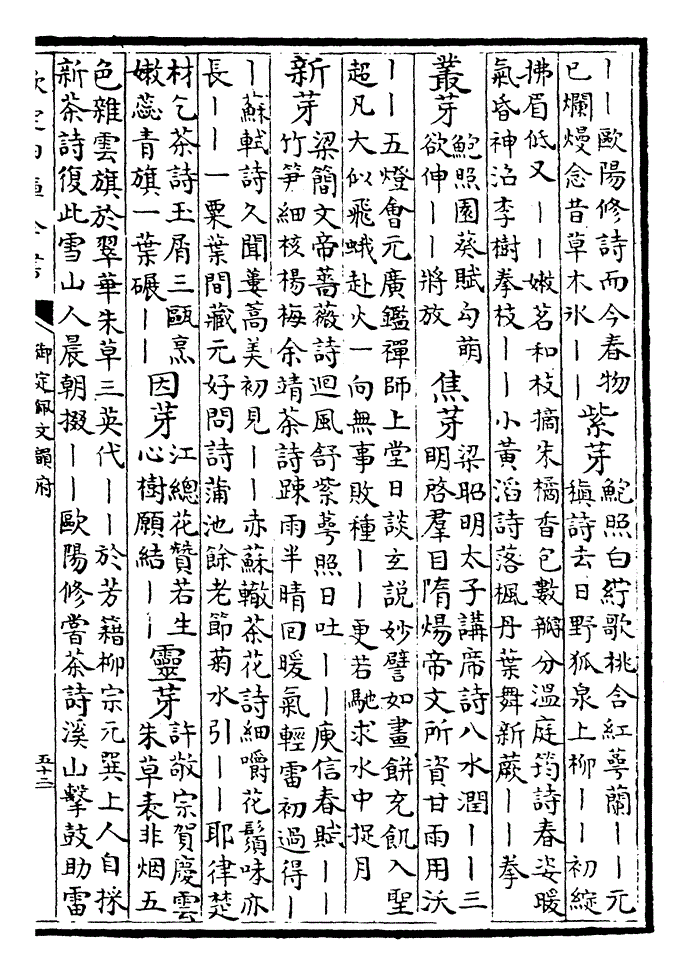 ——歐陽修詩而今春物
已爛熳念昔草木氷——
紫芽
鮑照白紵歌桃含紅萼蘭——元
稹詩去日野狐泉上柳——初綻
拂眉低又——嫩茗和枝摘朱橘香包數瓣分溫庭筠詩春姿暖
氣昏神沼李樹拳枝——小黃滔詩落楓丹葉舞新蕨——拳
叢芽
鮑照園葵賦勾萌
欲伸——將放
焦芽
梁昭明太子講席詩八水潤——三
明啓羣目隋煬帝文所資甘雨用沃
——五燈會元廣鑑禪師上堂曰談玄說妙譬如畫餅充飢入聖
超凡大似飛蛾赴火一向無事敗種——更若馳求水中捉月
新芽
梁簡文帝薔薇詩迴風舒紫萼照日吐——庾信春賦——
竹筍細核楊梅余靖茶詩踈雨半晴回暖氣輕雷初過得—
—蘇軾詩久聞蔞蒿美初見——赤蘇轍茶花詩細嚼花鬚味亦
長——一粟葉間藏元好問詩蒲池餘老節菊水引——耶律楚
材乞茶詩玉屑三甌烹
嫩蕊青旗一葉碾——
因芽
江總花贊若生
心樹願結——
靈芽
許敬宗賀慶雲
朱草表非烟五
色雜雲旗於翠華朱草三英代——於芳籍柳宗元巽上人自採
新茶詩復此雪山人晨朝掇——歐陽修嘗茶詩溪山擊鼓助雷
欽定四庫全書
御定佩文韻府
五十二